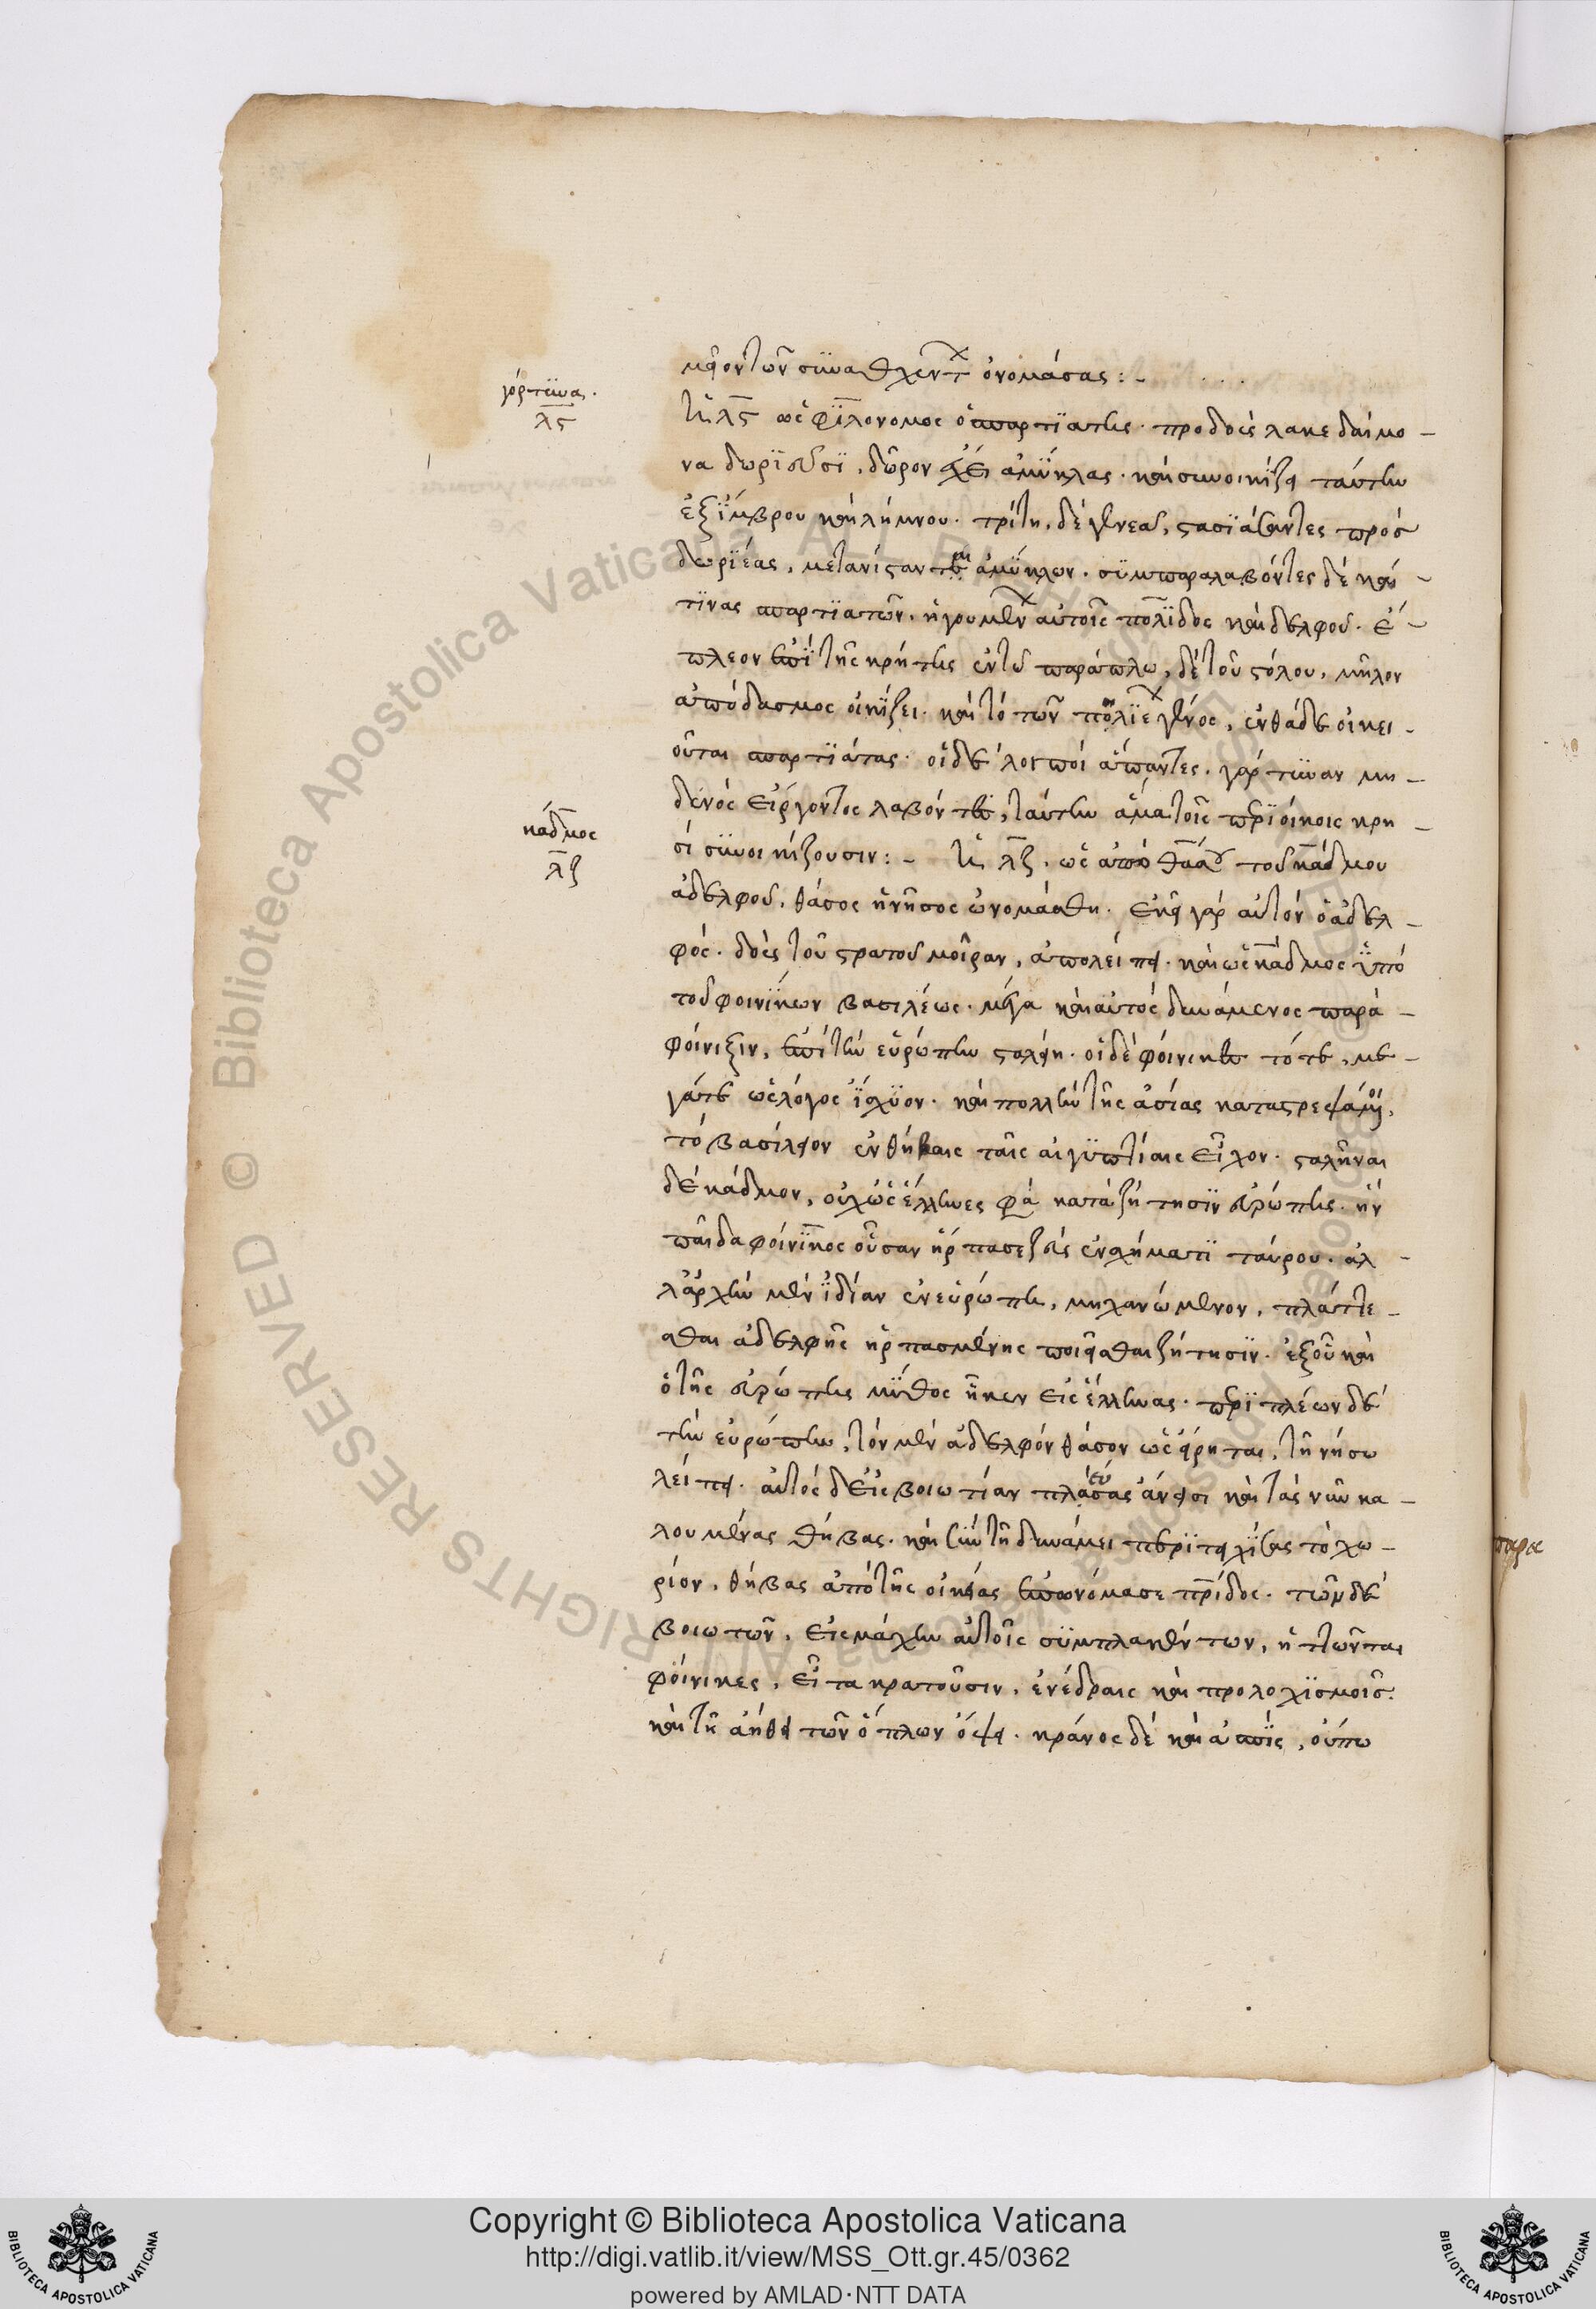 γόρτϋνα.
λϛ
μερὸν τῶν συναχθέντ ὀνομάσας:-
ἡ λϛ ὡς φιλόνομος ὁ σπαρτιάτης. προδοὺς λακεδαίμο-
να δωριεῦσι, δῶρον ἔχει ἀμύκλας. καὶ συνοικίζει ταύτην
ἐξ ἴμβρου καὶ λήμνου. τρίτῃ, δὲ γενεᾷ, στασιάσαντες πρὸς
δωριέας, μετανίσταντο ἀμύκλων. συμπαραλαβόντες δὲ καί
τινας σπαρτιατῶν, ἡγουμεν αὐτοῖς πόλιδος καὶ δελφοῦ. ἔ-
πλεον ἐπὶ τῆς κρήτης ἐν τῷ παράπλω, δὲ τοῦ στόλου, μῆλον
ἀπόδασμος οἰκίζει. καὶ τὸ τῶν γένος, ἐνθάδε οἰκει-
οῦται σπαρτιάτας. οἱ δὲ λοιποὶ ἅπαντες. γόρτυναν μη-
δενὸς εἴργοντος λαβόντες, ταύτην ἅμα τοῖς περιοίκοις κρη-
σὶ συνοικίζουσιν:- ἡ λζ. ὡς ἀπὸ θάσου τοῦ κάδμου
κάδμος
λζ
ἀδελφοῦ, θάσος ἡ νῆσος ὠνομάσθη. ἐκεῖ γὰρ αὐτὸν ὁ ἀδελ-
φός. δοὺς τοῦ στρατοῦ μοῖραν, ἀπολείπει. καὶ ὡς κάδμος ὑπὸ
τοῦ φοινίκων βασιλέως. μέγα καὶ αὐτὸς δυνάμενος παρὰ-
φοίνιξιν, ἐπὶ τὴν εὐρώπην σταλείη. οἱ δὲ φοίνικες τότε, με-
γάτε ὡς λόγος ἴσχυον. καὶ πολλὴν τῆς ἀσίας καταστρεψάμενοι,
τὸ βασίλειον ἐν θήβαις ταῖς αἰγυπτίαις εἶχον. σταλῆναι
δὲ κάδμον, οὐχ ὡς ἕλληνες φασὶ κατὰ ζήτησιν εὐρώπης. ἣν
παῖδα φοίνικος οὖσαν ἥρπασε ζεὺς ἐν σχήματι ταύρου. ἀλ-
λ' ἀρχὴν μὲν ἰδίαν ἐν εὐρώπῃ, μηχανώμενον, πλάττε-
σθαι ἀδελφῆς ἡρπασμένης ποιεῖσθαι ζήτησιν. ἐξ οὗ καὶ
ὁ τῆς εὐρώπης μῦθος ἧκεν εἰς ἕλληνας. περιπλέων δὲ
τὴν εὐρώπην, τὸν μὲν ἀδελφὸν θάσον ὡς εἴρηται, τῇ νήσω
λείπει. αὐτὸς δ' εἰς βοιωτίαν πλεύσας ἄνεισι καὶ τὰς νῦν κα-
λουμένας θήβας. καὶ σὺν τῇ δυνάμει περιτειχίσας τὸ χω-
ρίον, θήβας ἀπὸ τῆς οἰκείας ἐπωνόμασε πρίδος. τῶν δὲ
βοιωτῶν, εἰς μάχην αὐτοῖς συμπλακέντων, ἡττῶνται
φοίνικες, εἶτα κρατοῦσιν, ἐνέδραις καὶ προλοχισμοῖς.
καὶ τῇ ἀήθει τῶν ὅπλων ὄψει. κράνος δὲ καὶ ἀσπὶς, οὔπω
Copyright © Biblioteca Apostolica Vaticana
http://digi.vatlib.it/view/MSS_Ott.gr.45/0362
powered by AMLAD·NTT DATA